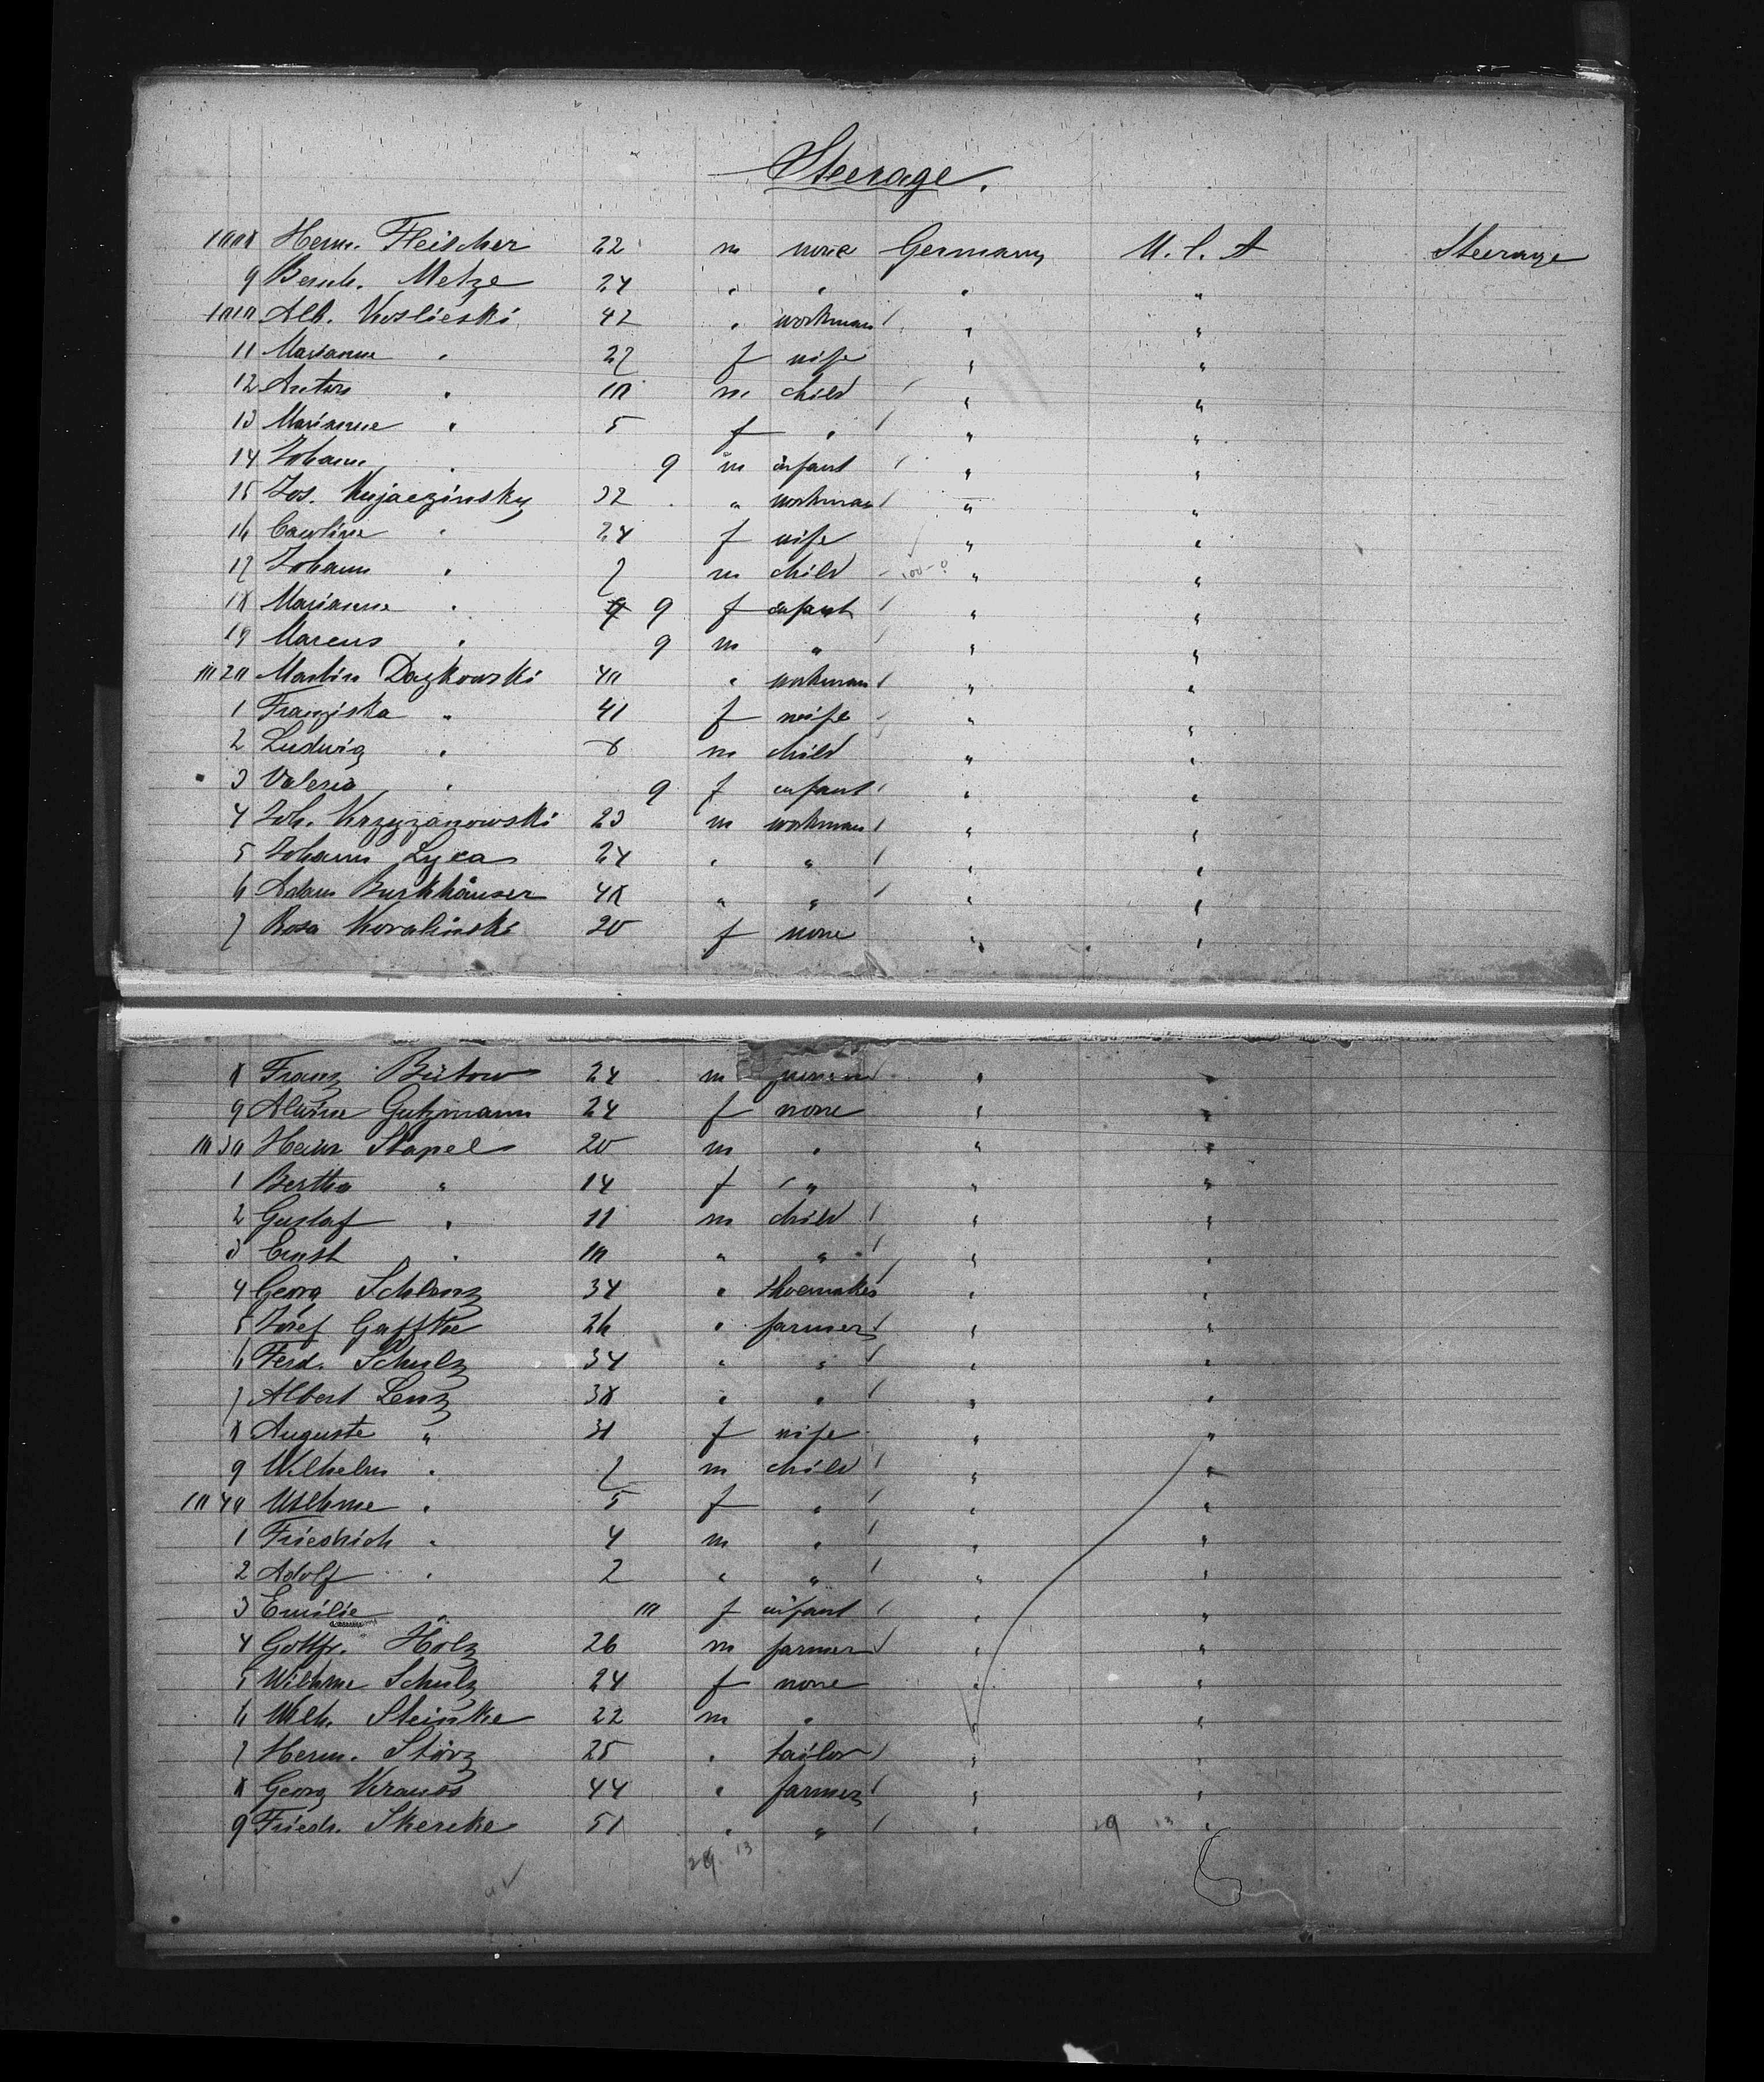 Steerage.
1008 Herm. Fleischer 22 m none Germany U.S.A Steerage
9 Bernh. Metze 24 " " " "
1010 Alb. Koslieski 42 " workman / " "
11 Marianne " 27 f wife " "
12 Anton " 10 m child / " "
13 Marianne " 5 f " / " "
14 Johann " 9 m infant / " "
15 Jos. Kujaczinsky 32 " workman / " "
16 Caroline " 24 f wife " "
17 Johann " 7 m child - " "
18 Marianne " 9 f infant / " "
19 Marcus " 9 m " / " "
1020 Martin Dazkowski 40 " workman / " "
1 Franziska " 41 f wife " "
2 Ludwig " 8 m child " "
3 Valeria " 9 f infant / " "
4 Joh. Krzyzanowski 23 m workman / " "
5 Johann Lyca 24 " " / " "
6 Adam Burkhäuser 48 " " / " "
7 Rosa Koralinski 20 f none " "
8 Franz Bütow 24 m " "
9 Alwine Gutzmann 24 f none " "
1030 Heinr Stapel 20 m " " "
1 Bertha " 14 f / " " "
2 Gustaf " 11 m child / " "
3 Ernst " 10 " " / " "
4 Georg Schlanz 34 " shoemaker " "
5 Josef Gaffke 26 " farmer / " "
6 Ferd. Schulz 34 " " / " "
7 Albert Lenz 38 " " / " "
8 Auguste " 31 f wife " "
9 Wilhelm " 7 m child / " "
1040 Wilhme " 5 f " / " "
1 Friedrich " 4 m " / " "
2 Adolf " 2 " " / " "
3 Emilie " 10 f infant / " "
4 Gottfr. Holz 26 m farmer / " "
5 Wilhme Schulz 24 f none " "
6 Wilh. Steinke 22 m " " "
7 Herm. Störz 25 " tailor / " "
8 Georg Krauss 44 " farmer / " "
9 Friedr. Skercke 51 " " / " 29 13 "
29 13